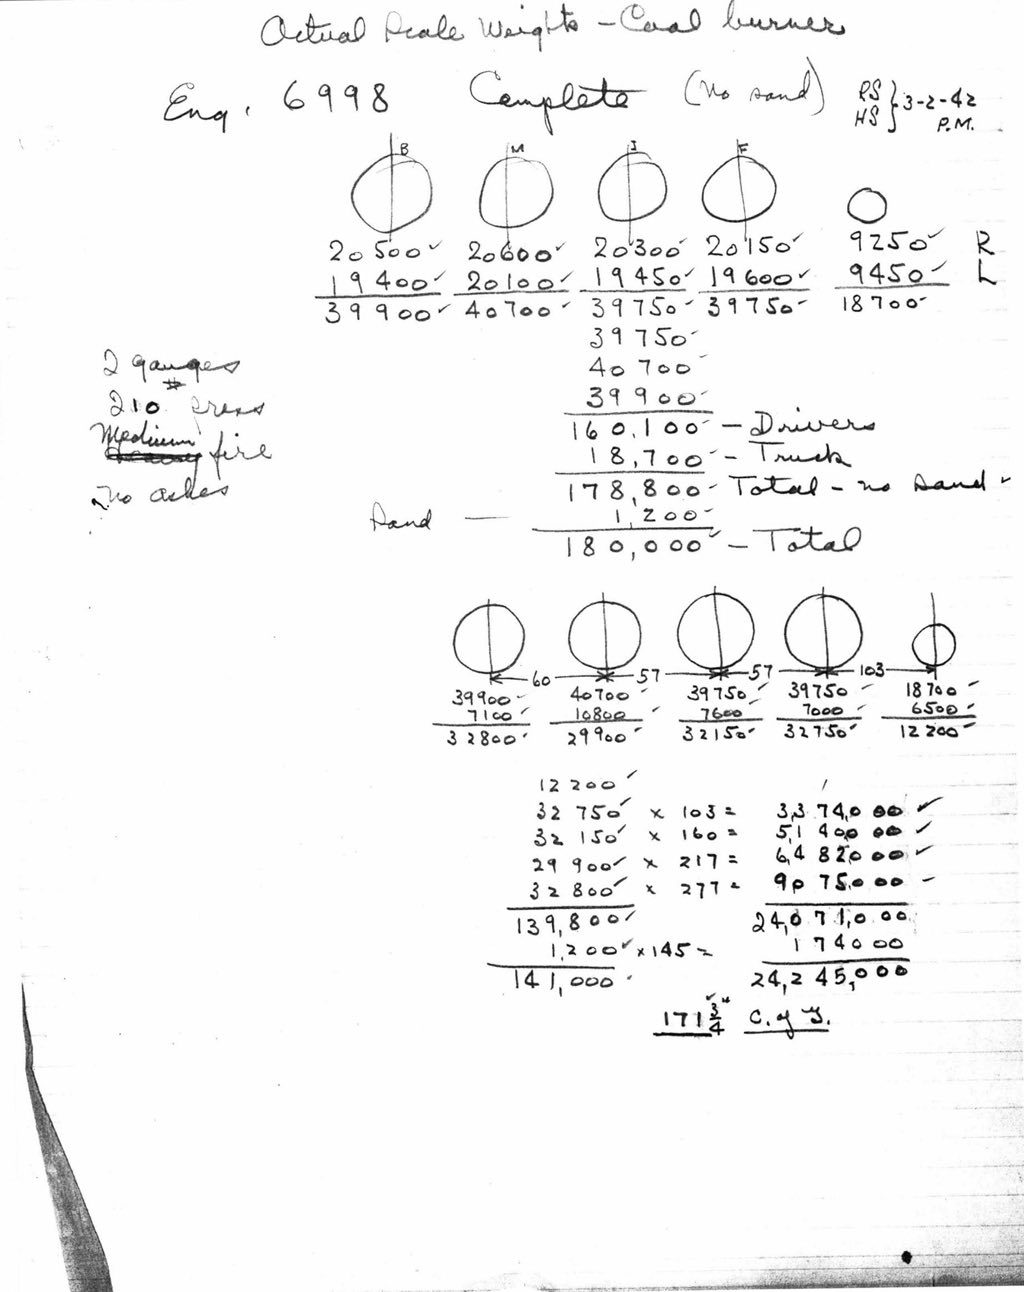 Actual Scale Weights - Coal burner
Eng. 6998 Complete (No sand) RS HS } 3-2-42 P.M.
B M I F
20500 20600 20300 20150 9250 R
19400 20100 19450 19600 9450 L
39900 40700 39750 39750 18700
39750
2 gauges 40700
210 # press 39900
160,100 - Drivers
Medium fire 18,700 - Truck
No ashes 178,800 - Total - no sand
Sand — 1,200
180,000 - Total
60 57 57 103
39900 40700 39750 39750 18700
7100 10800 7600 7000 6500
32800 29900 32150 32750 12200
12200
32750 x 103 = 3,374,000
32150 x 160 = 5,140000
29900 x 217 = 6,482000
32800 x 277 = 9075000
139,800 24,071,000
1,200 x 145 = 174000
141,000 24,245,000
171 3/4" C. of G.